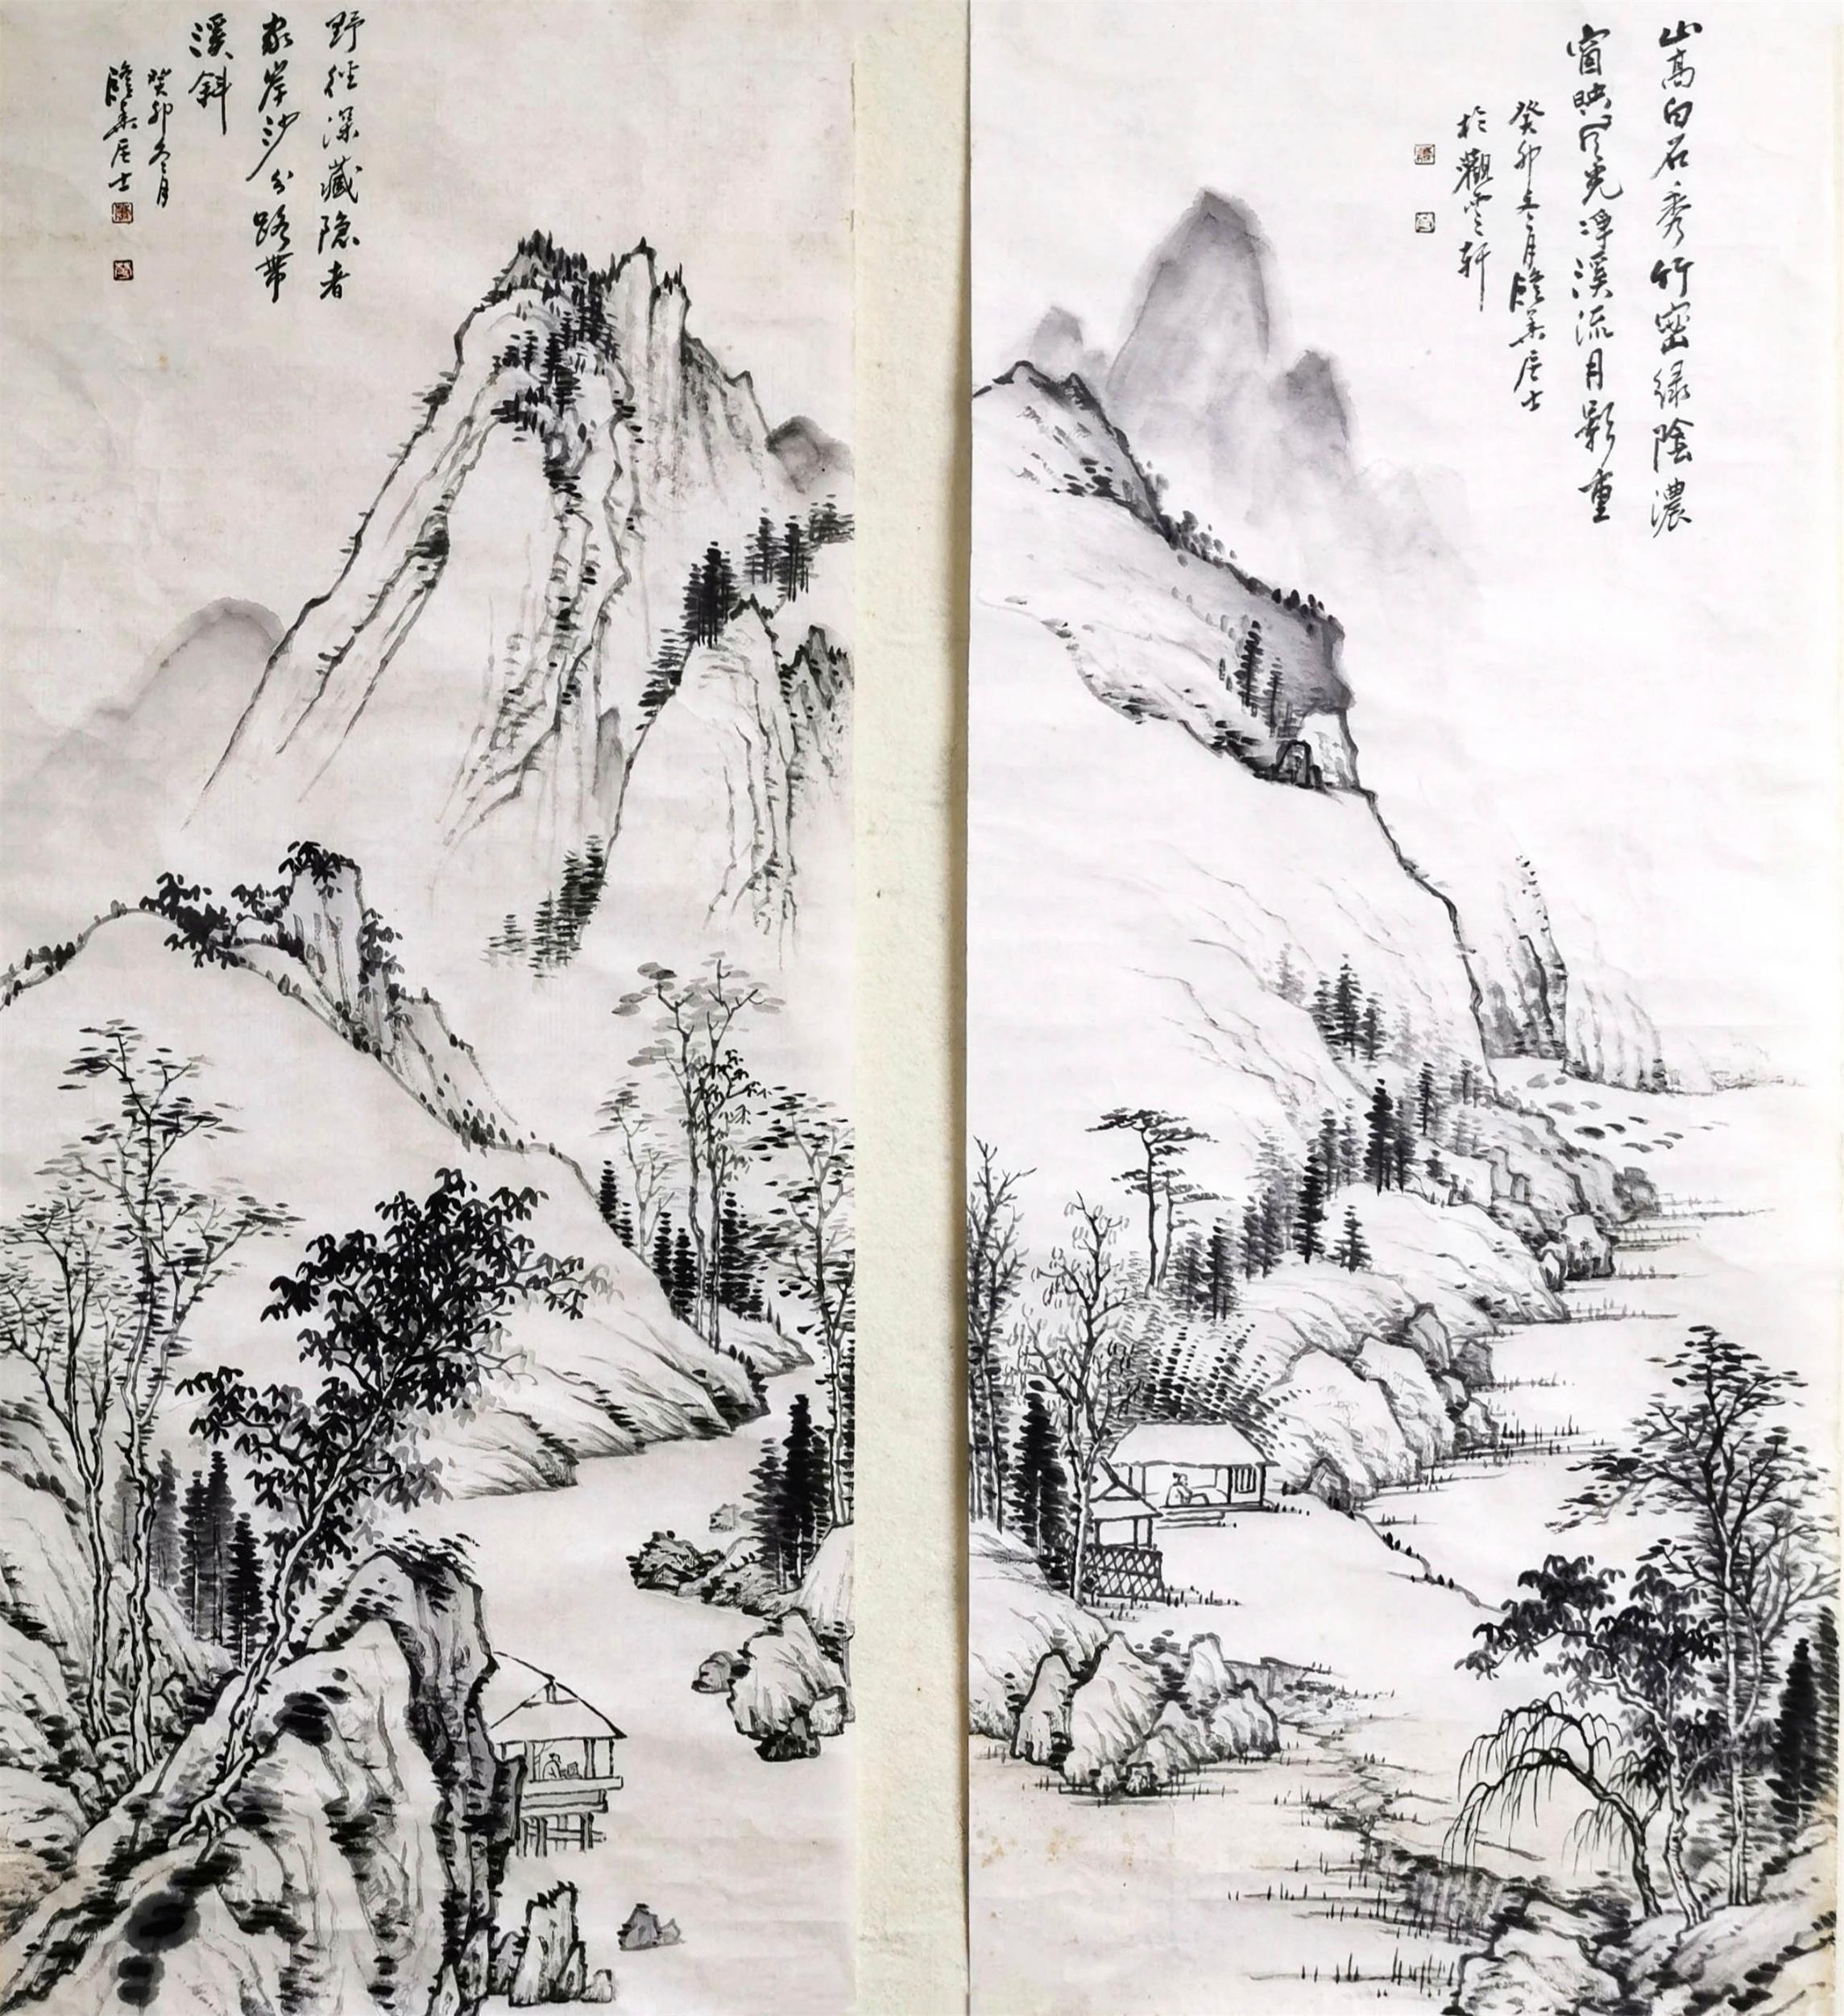 山高白石秀竹密绿陰濃
窗映風光浮溪流月影重
癸卯冬月居士
於觀雲軒
野徑深藏隐者
家岸沙分路带
溪斜
癸卯冬月
居士